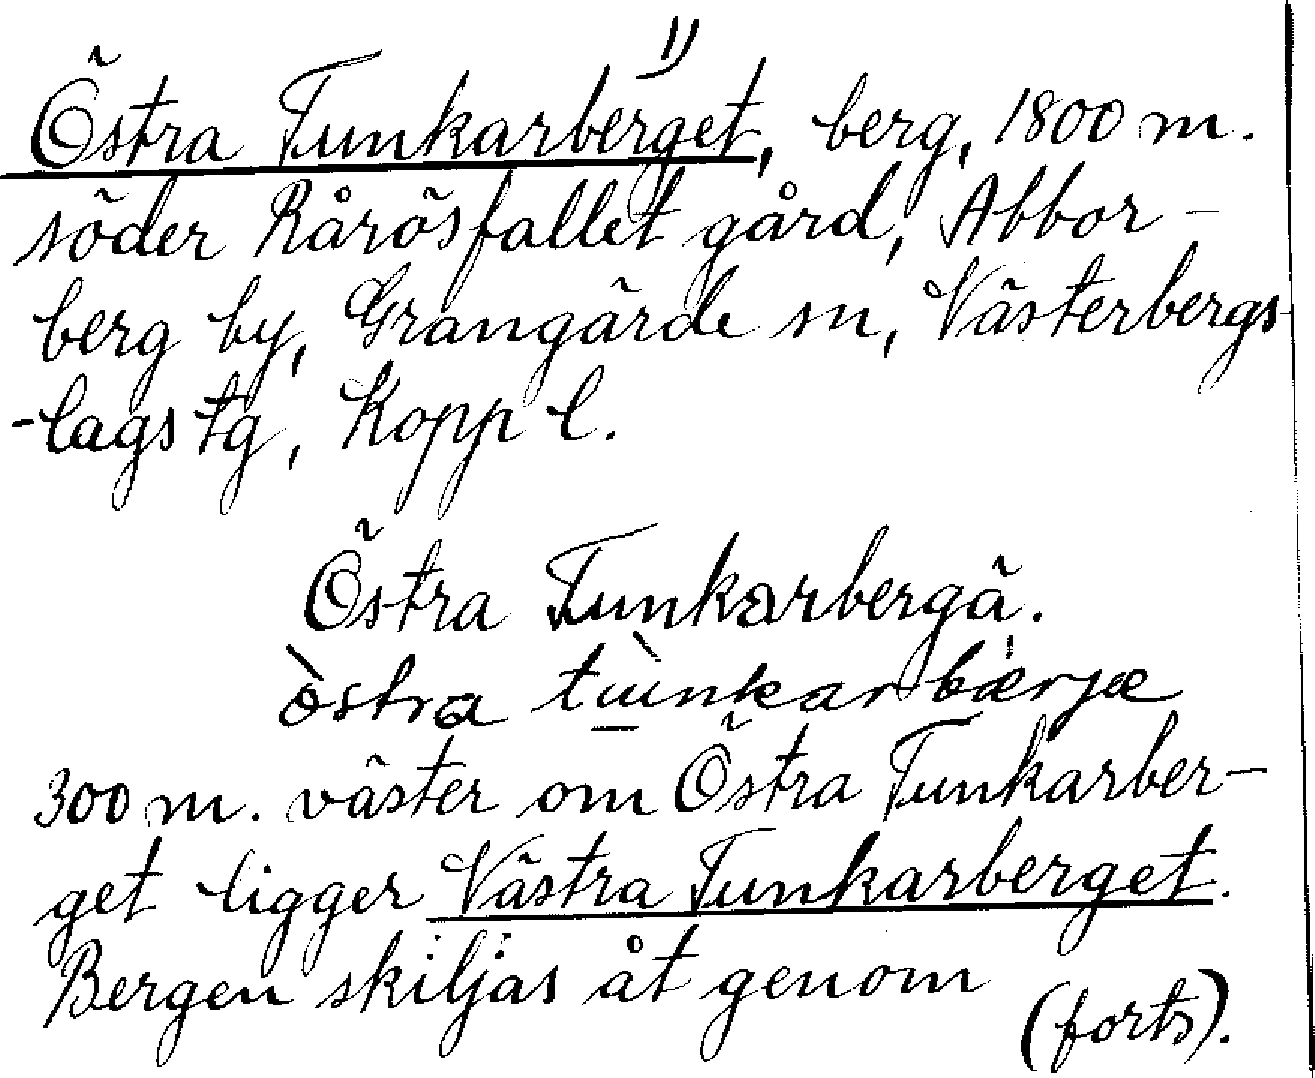 1)
Östra Tunkarberget, berg, 1800 m.
söder Rårösfallet gård, Abbor-
berg by, Grangärde sn, Västerbergs
-lags tg, Kopp l.
Östra Tunkarbergä.
òstra tùnkarbærjæ
300 m. väster om Östra Tunkarber-
get ligger Västra Tunkarberget.
Bergen skiljas åt genom
(forts).